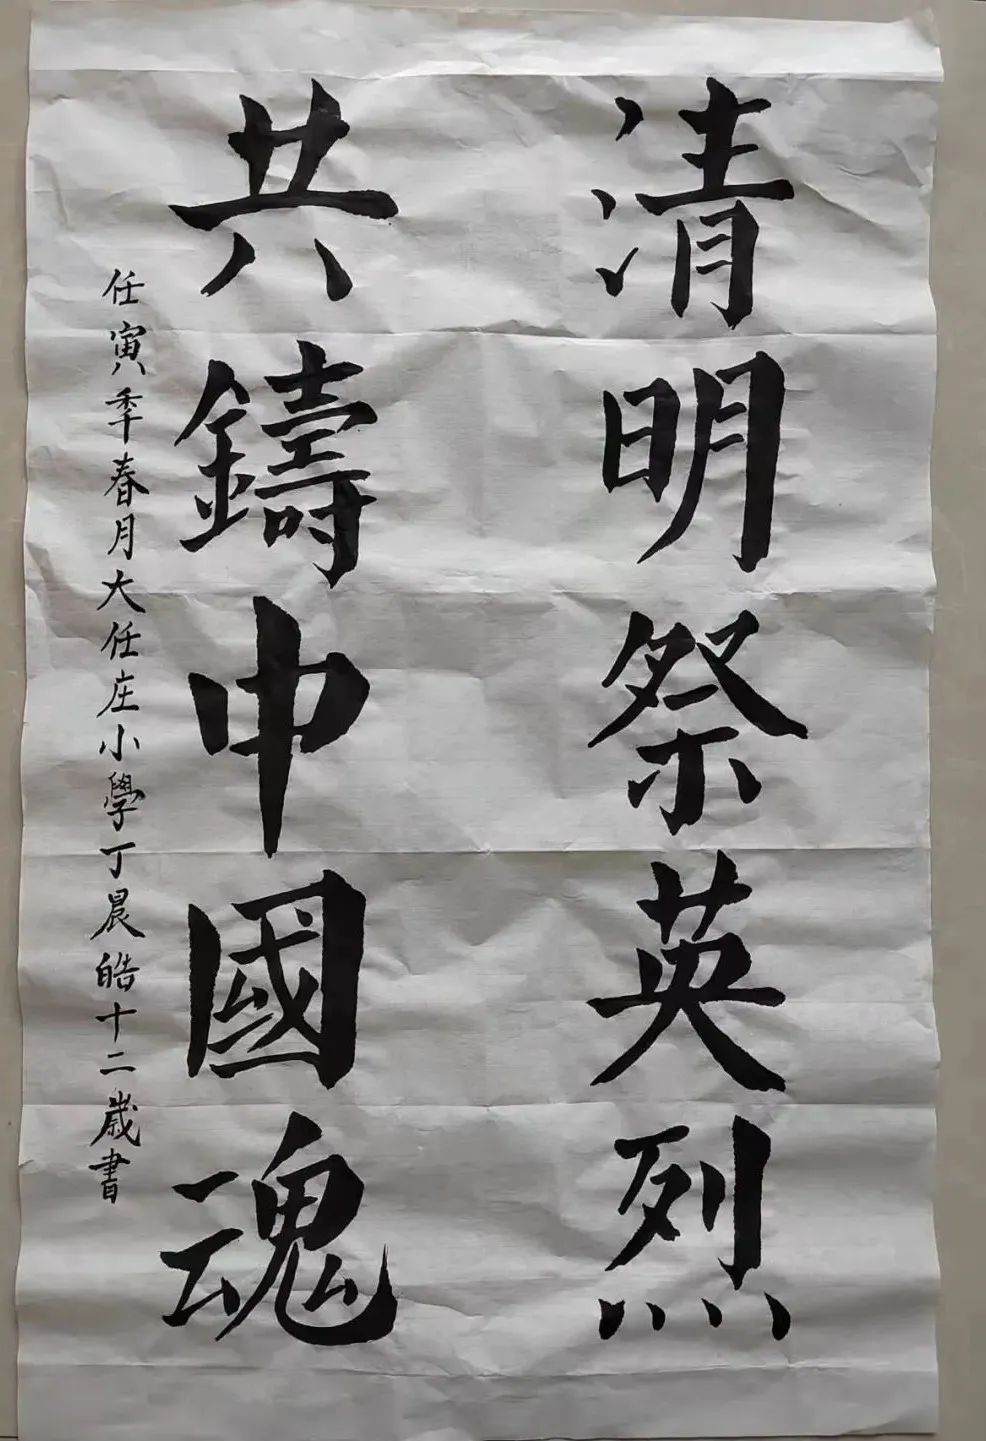 清明祭英烈
共鑄中國魂
任寅季春月大任庄小學丁晨皓十二歲書